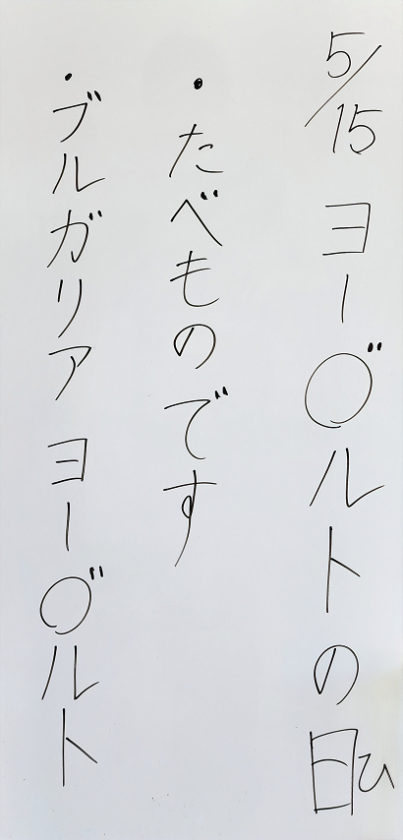 5/15 ヨー○゛ルトの日ひ
・たべものです
・ブルガリアヨー○゛ルト